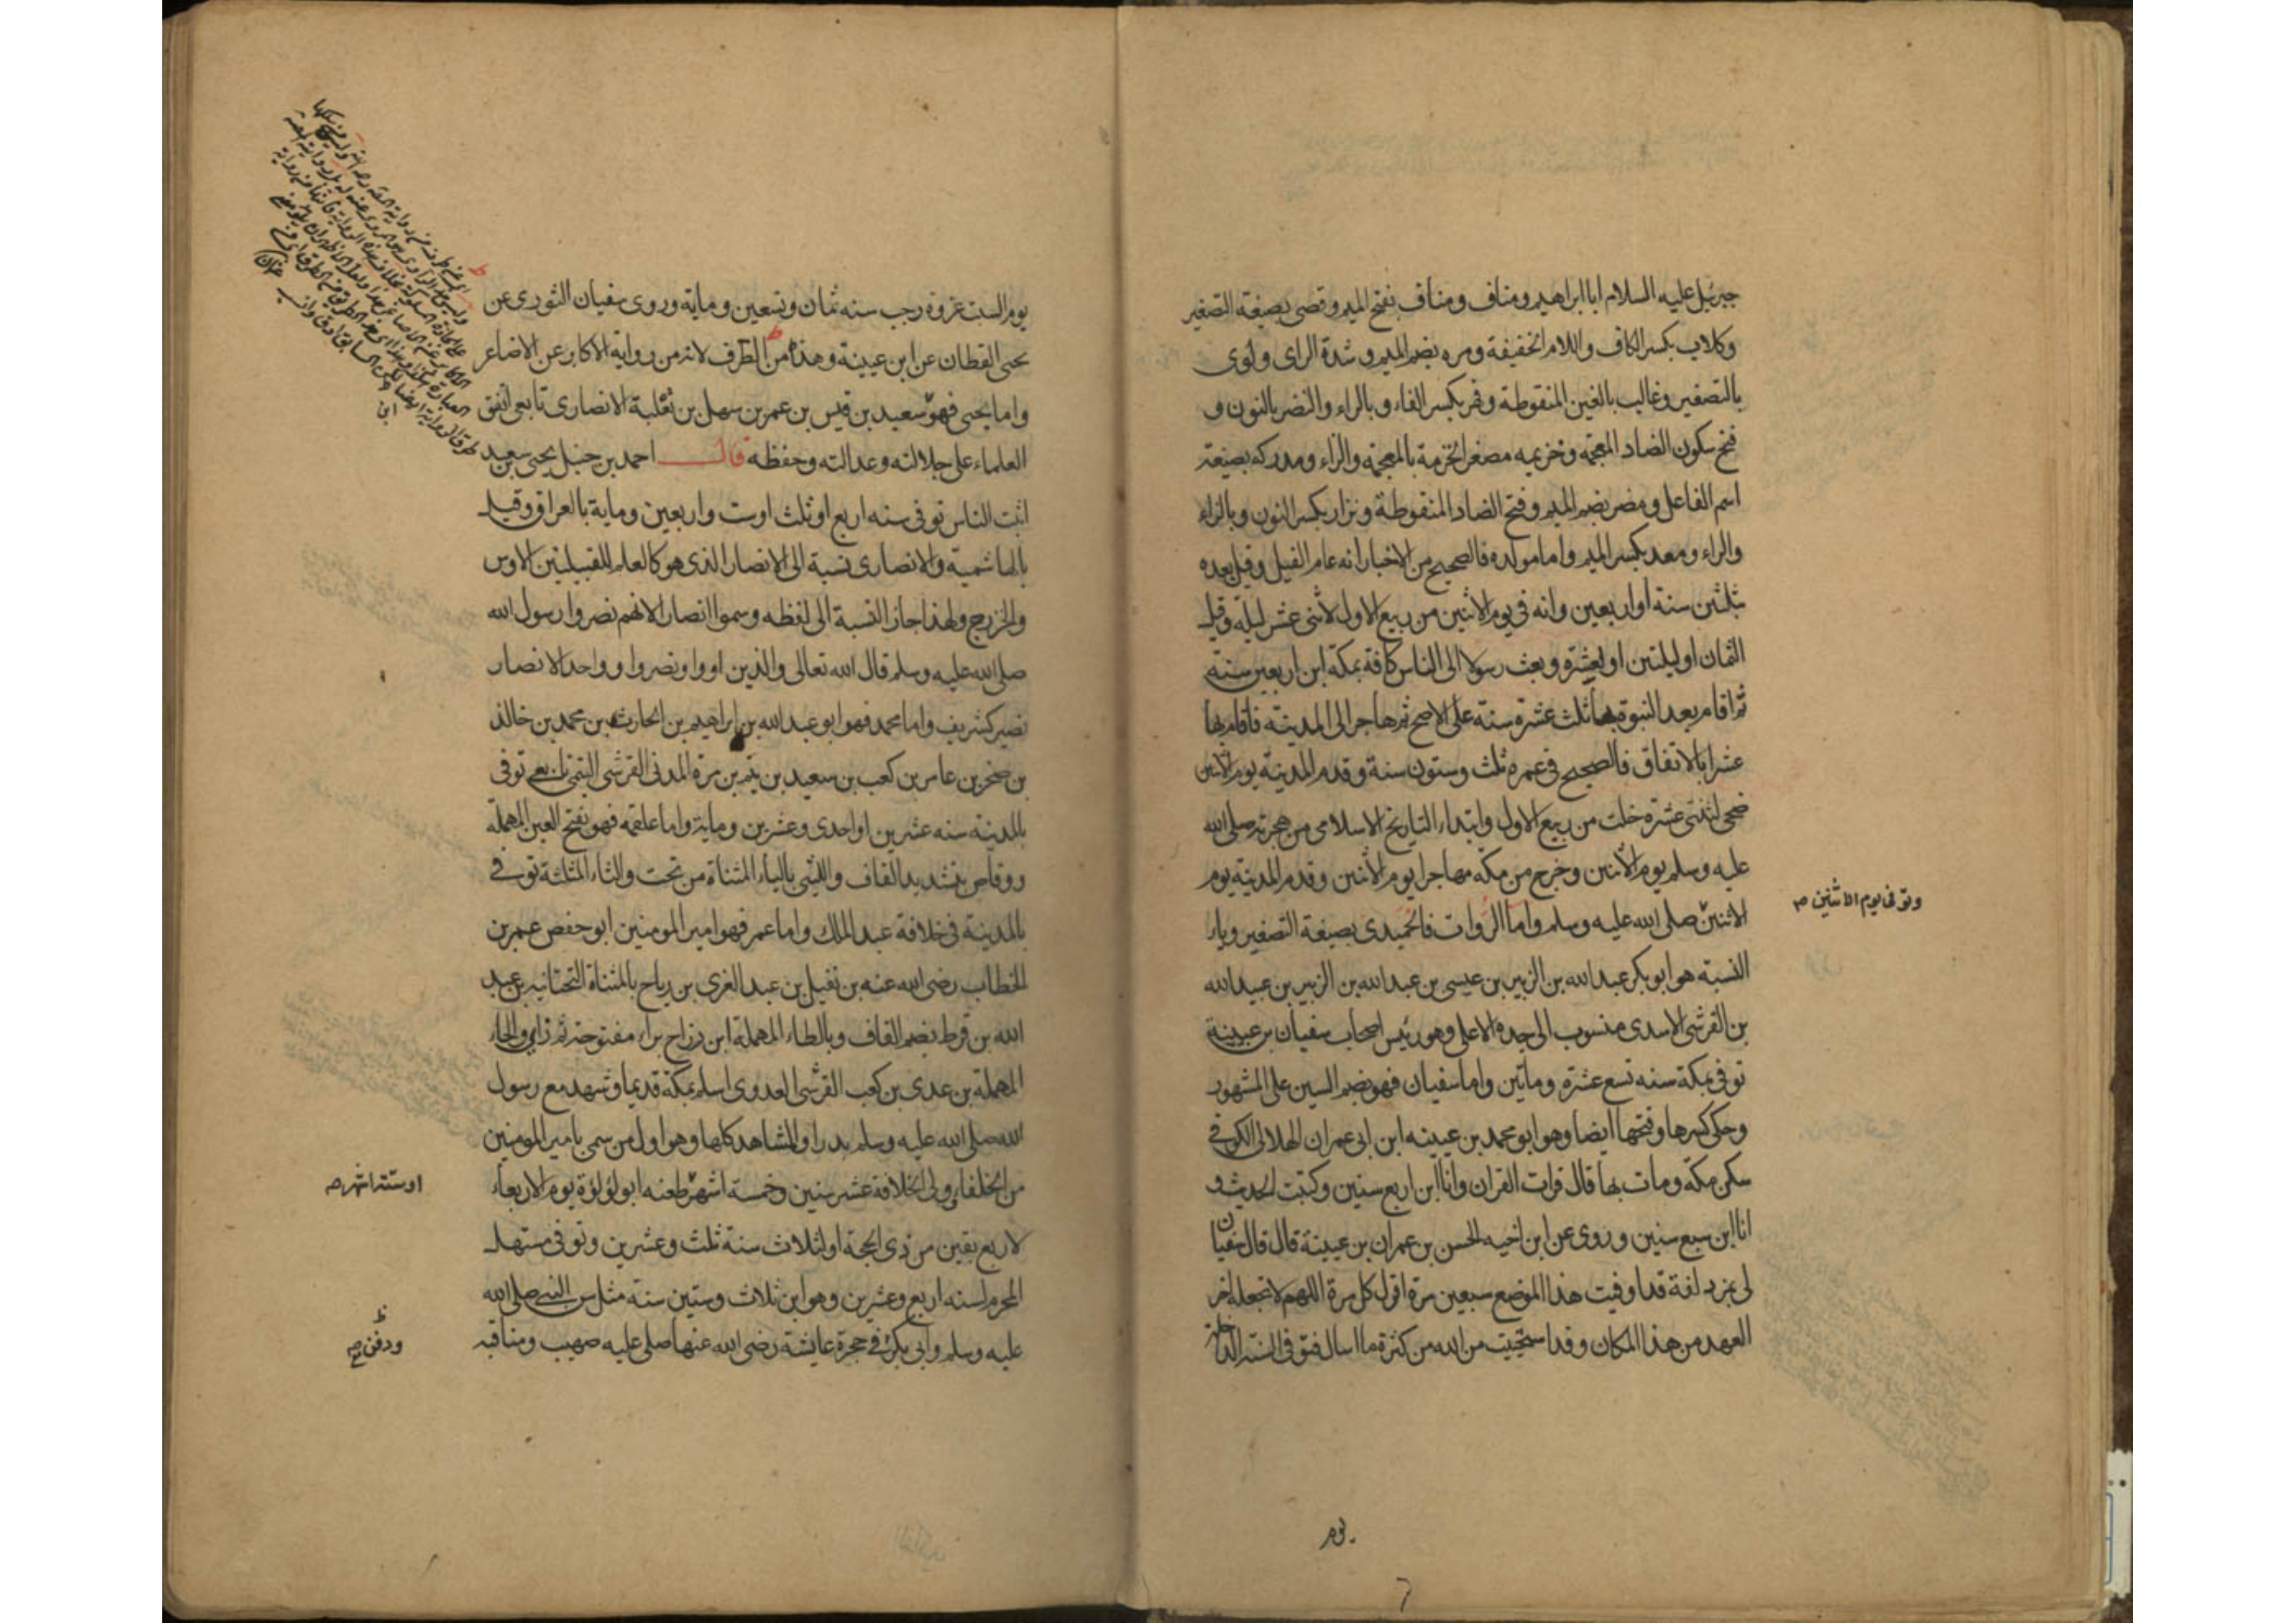 جبرئيل عليه السلام ابا ابراهيم ومناف ومناف بفتح الميم وقصى بصيغة التصغير
وكلاب بكسر الكاف واللام الخفيفة ومره بضم الميم وشدة الراى ولوى
بالتصغير وغالب بالغين المنقوطة وفهر بكسر الفاء وبالراء والنضر بالنون و
فتح سكون الضاد المعجمة وخزيمه مصغر الخزمة بالمعجمة والزاء ومدركه بصيغة
اسم الفاعل ومضر بضم الميم وفتح الضاد المنقوطة ونزار بكسر النون وبالزاء
والراء ومعد بكسر الميم واما مولده فالصحيح من الاخبار انه عام الفيل وقيل بعده
بثلثين سنة او اربعين وانه فى يوم الاثنين من ربيع الاول لاثنى عشر ليلة وقيل
الثمان او ليلتين او لعشرة وبعث رسولا الى الناس كافة بمكة ابن اربعين سنة
ثم اقام بعد النبوة بها ثلث عشرة سنة على الاصح ثم هاجر الى المدينة فاقام بها
عشرا بالاتفاق فالصحيح فى عمره ثلث وستون سنة وقدم المدينة يوم الاثنين
ضحى لثنتى عشرة خلت من ربيع الاول وابتداء التاريخ الاسلامى من هجرته صلى الله
عليه وسلم يوم الاثنين وخرج من مكة مهاجرا يوم الاثنين وقدم المدينة يوم
وتوفى يوم الاثنين صح
الاثنين صلى الله عليه وسلم واما الروات فالحميدى بصيغة التصغير وياء
النسبة هو ابو بكر عبد الله بن الزبير بن عيسى بن عبد الله بن الزبير بن عبيد الله
بن القرشى الاسدى منسوب الى جده الاعلى وهو رئيس اصحاب سفيان بن عيينة
توفى بمكة سنه تسع عشرة وماتين واما سفيان فهو بضم السين على المشهور
وحكى كسرها وفتحها ايضا وهو ابو محمد بن عيينه ابن ابى عمران الهلالى الكوفى
سكن مكة ومات بها قال قرات القران وانا ابن اربع سنين وكتبت الحديث و
انا ابن سبع سنين وروى عن ابن اخيه الحسن بن عمران بن عيينة قال قال سفيان
لى بمزدلفة قد اوفيت هذا الموضع سبعين مرة اقول كل مرة اللهم لا تجعله اخر
العهد من هذا المكان وقد استحييت من الله من كثرة ما اسال فتوفى السنة الداخلة
يوم
يوم السبت غزوة رجب سنه ثمان وتسعين وماية وروى سفيان الثورى عن
يحيى القطان عن ابن عيينة وهذا من الطرف لانه من رواية الاكابر عن الاصاغر
واما يحيى فهو سعيد بن قيس بن عمر بن سهل بن ثعلبة الانصارى تابعى اتفق
العلماء على جلالته وعدالته وحفظه قال احمد بن حنبل يحيى بن سعيد
اثبت الناس توفى سنه اربع او ثلث او ست واربعين وماية بالعراق وقيل
بالهاشمية والانصارى نسبة الى الانصار الذى هو كالعلم للقبيلتين الاوس
والخزرج ولهذا جاز النسبة الى لفظه وسموا انصارا لانهم نصروا رسول الله
صلى الله عليه وسلم قال الله تعالى والذين اووا ونصروا و واحد الانصار
نصير كشريف واما محمد فهو ابو عبد الله بن ابراهيم بن الحارث بن محمد بن خالد
بن صخر بن عامر بن كعب بن سعيد بن تيم بن مرة المدنى القرشى التيمى تابعى توفى
بالمدينة سنه عشرين او احدى وعشرين وماية واما علقمه فهو بفتح العين المهملة
ووقاص بتشديد القاف والليثى بالياء المثناة من تحت والثاء المثلثة توفى
بالمدينة فى خلافة عبد الملك واما عمر فهو امير المومنين ابو حفص عمر بن
الخطاب رضى الله عنه بن نفيل بن عبد العزى بن رياح بالمثناة التحتانيه بن عبد
الله بن قرط بضم القاف وبالطاء المهملة ابن رزاح براء مفتوحة ثم زاى والحاء
المهملة بن عدى بن كعب القرشى العدوى اسلم بمكة قديما وشهد مع رسول
الله صلى الله عليه وسلم بدرا والمشاهد كلها وهو اول من سمى بامير المومنين
من الخلفاء ولى الخلافة عشر سنين وخمسة اشهر طعنه ابو لؤلؤة يوم الاربعاء
او ستة اشهر صح
لاربع بقين من ذى الحجة او لثلاث سنة ثلث وعشرين وتوفى مستهل
المحرم سنه اربع وعشرين وهو ابن ثلاث وستين سنة مثل سن النبى صلى الله
عليه وسلم وابى بكر فى حجرة عايشة رضى الله عنها صلى عليه صهيب ومناقبه
ودفن صح